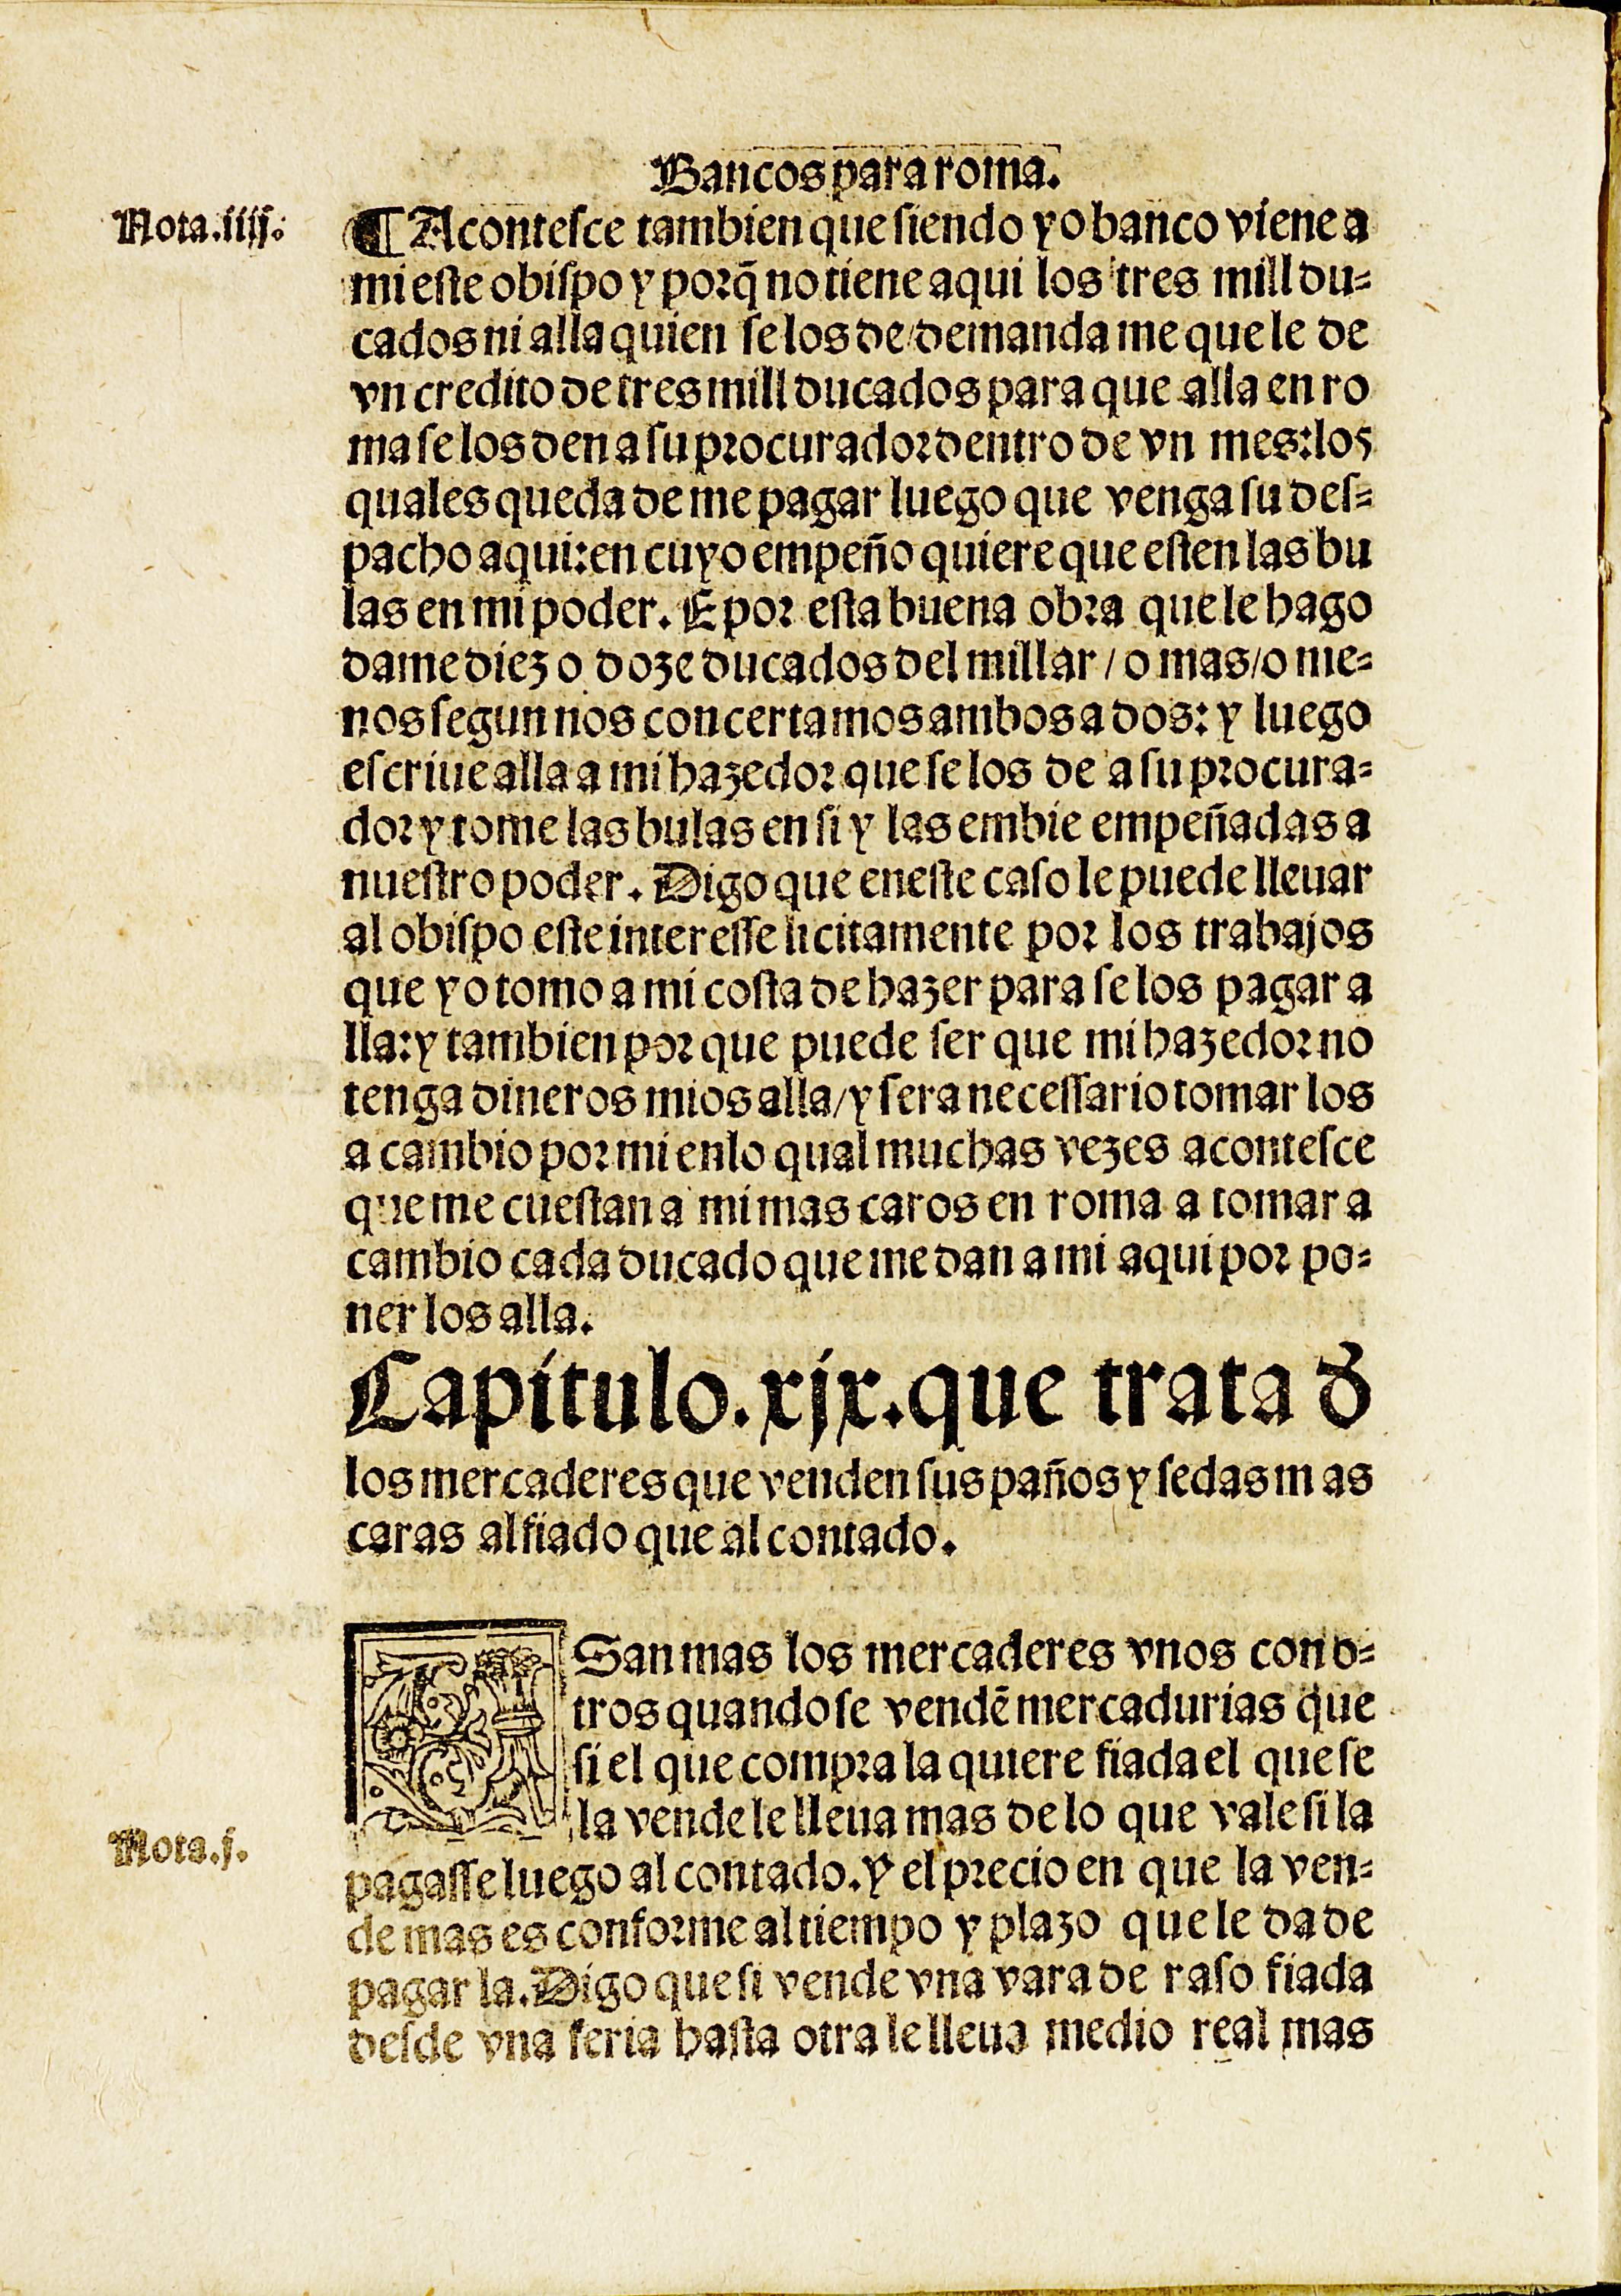 Bancos para roma.
Nota.iiij.
¶ Acontesce tambien que siendo yo banco viene a
mi este obispo y porq̃ no tiene aqui los tres mill du-
cados ni alla quien se los de/demanda me que le de
vn credito de tres mill ducados para que alla en ro
ma se los den a su procurador dentro de vn mes:los
quales queda de me pagar luego que venga su des-
pacho aqui:en cuyo empeño quiere que esten las bu
las en mi poder. E por esta buena obra que le hago
dame diez o doze ducados del millar / o mas/o me-
nos segun nos concertamos ambos a dos: y luego
escriue alla a mi hazedor que se los de a su procura-
dor y tome las bulas en si y las embie empeñadas a
nuestro poder. Digo que eneste caso le puede lleuar
al obispo este interesse licitamente por los trabajos
que yo tomo a mi costa de hazer para se los pagar a
lla:y tambien por que puede ser que mi hazedor no
tenga dineros mios alla/y sera necessario tomar los
a cambio por mi enlo qual muchas vezes acontesce
que me cuestan a mi mas caros en roma a tomar a
cambio cada ducado que me dan a mi aqui por po-
ner los alla.
Capitulo.xjx.que trata d̃
los mercaderes que venden sus paños y sedas mas
caras al fiado que al contado.
San mas los mercaderes vnos con o-
tros quando se vendẽ mercadurias que
si el que compra la quiere fiada el que se
la vende le lleua mas de lo que vale si la
Nota.j.
pagasse luego al contado.Y el precio en que la ven-
de mas es conforme al tiempo y plazo que le da de
pagar la.Digo que si vende vna vara de raso fiada
desde vna feria hasta otra le lleua medio real mas